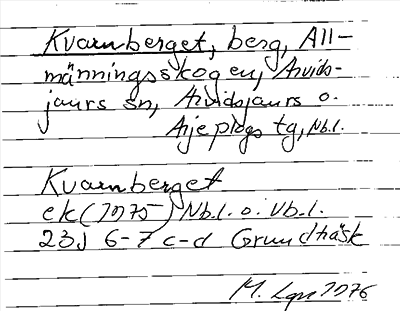 Kvarnberget, berg, All-
männingsskogen, Arvids-
jaurs sn, Arvidsjaurs o.
Arjeplogs tg, Nb.l.
Kvarnberget
ek (1975) Nb.l. o. Vb.l.
23J 6-7 c-d Grundträsk
M. 1976